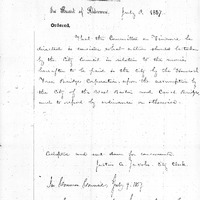 In Board of Aldermen, July 1857.
Ordered,
That the Committee on Finance be
directed to consider what action should be taken
by the City Council in relation to the
to be paid to the City by the Hancock
Free Bridge Corporation, upon the assumption by
the City of the West Boston and Canal Bridges,
and to report by ordinance or otherwise.
Adopted and sent down for concurrence
Justin A. Jacobs City Clerk.
In Common Council July 9. 1857